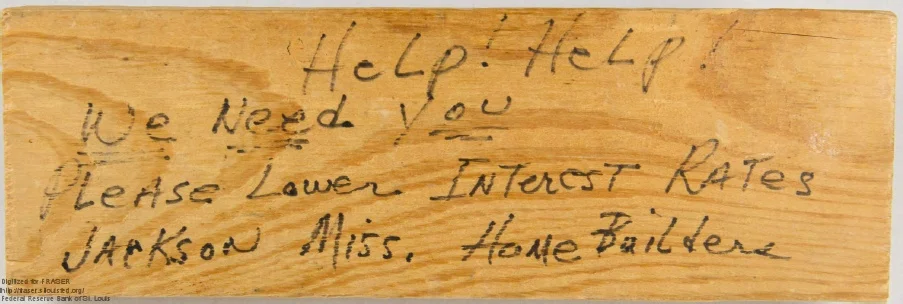 Help! Help!
We Need You
Please Lower Interest Rates
Jackson Miss. Home Builders
Digitized for FRASER
http://fraser.stlouisfed.org/
Federal Reserve Bank of St. Louis